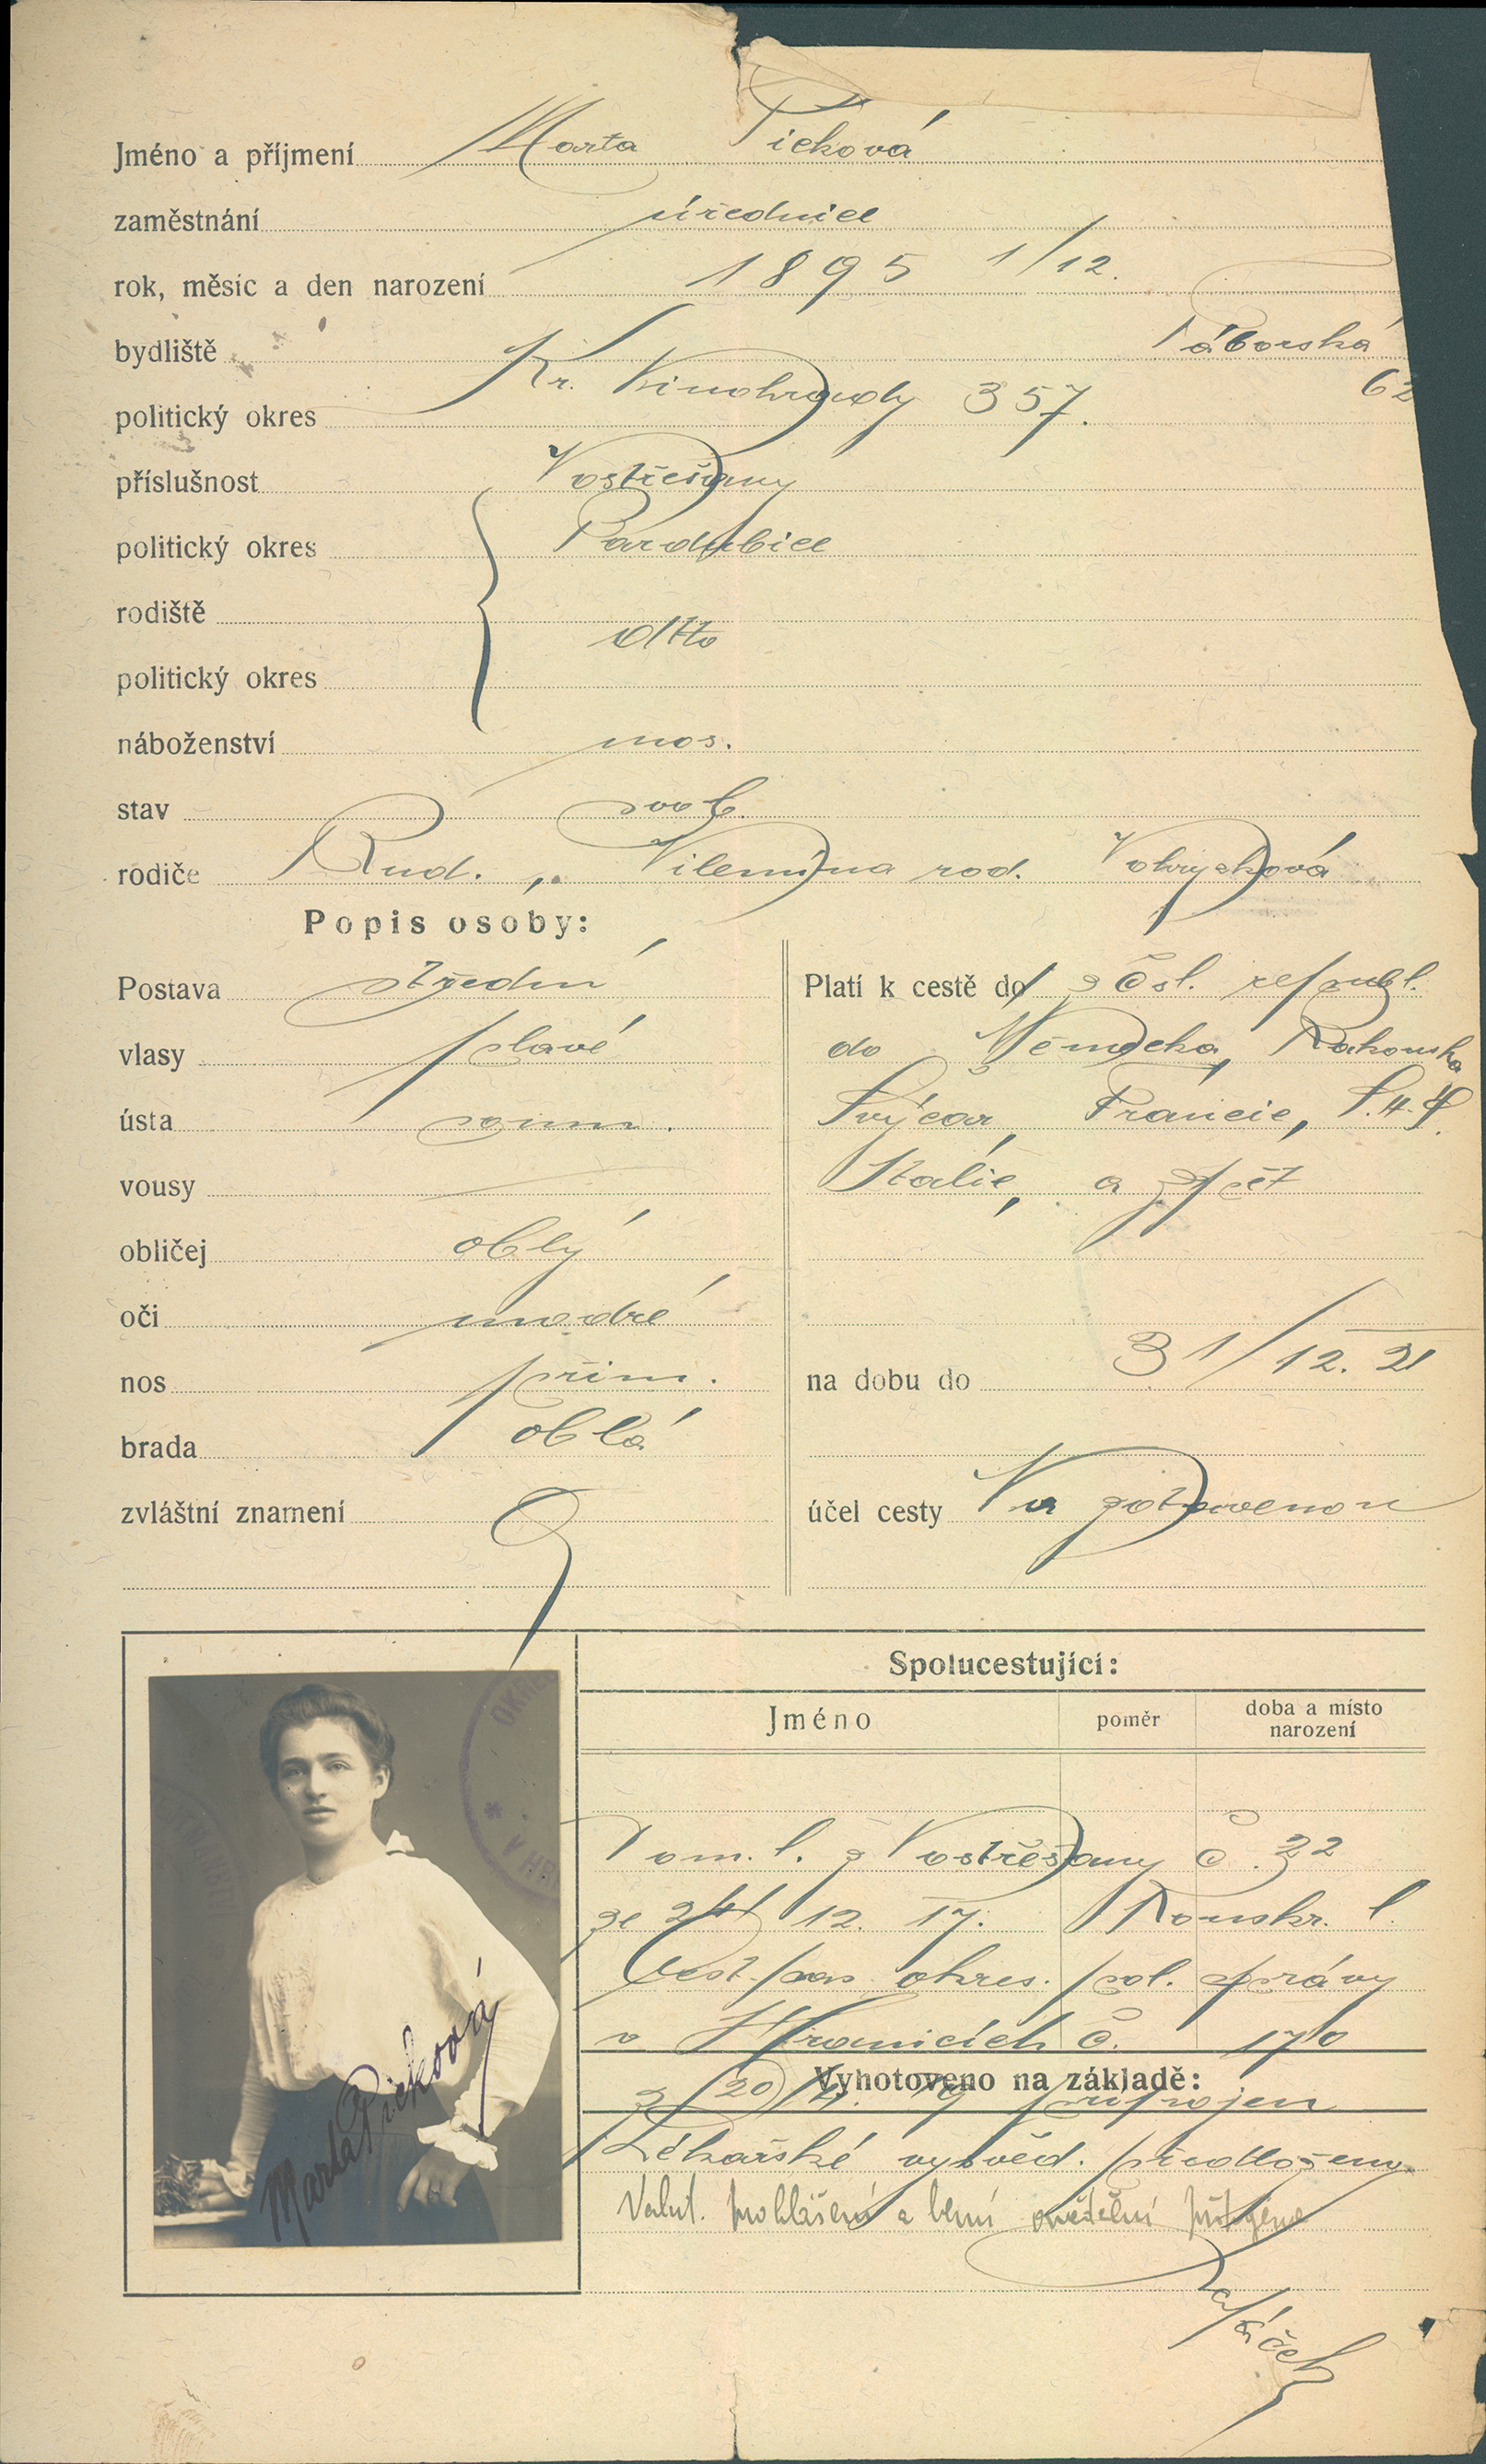 Jméno a příjmení Marta Picková
zaměstnání úřednice
rok, měsíc a den narození 1895 1/12.
bydliště Táborská
politický okres Kr. Vinohrady 357. 62
příslušnost Vostřešany
politický okres Pardubice
rodiště dtto
politický okres
náboženství mos.
stav svob.
rodiče Rud. Vilemina rod. Vohrysková
Popis osoby:
Postava střední
vlasy plavé
ústa soum.
vousy
obličej oblý
oči modré
nos přim.
brada oblá
zvláštní znamení
Platí k cestě do z Čsl. republ.
do Německa, Rakouska
Švýcar, Francie, S.H.S.
Italie, a zpět
na dobu do 31/12. 21
účel cesty Na zotavenou
Spolucestující:
Jméno poměr doba a místo
narození
Dom. l. z Vostřešany č. 22
ze 24/12. 17.
Cest. pas okres. pol. správy
v Hranicích č. 170
Vyhotoveno na základě:
z 20/ 19 připojen
Lékařské vysvěd. předloženo.
Valut. prohlášení a berní připojeno
Marta Picková
OKRES